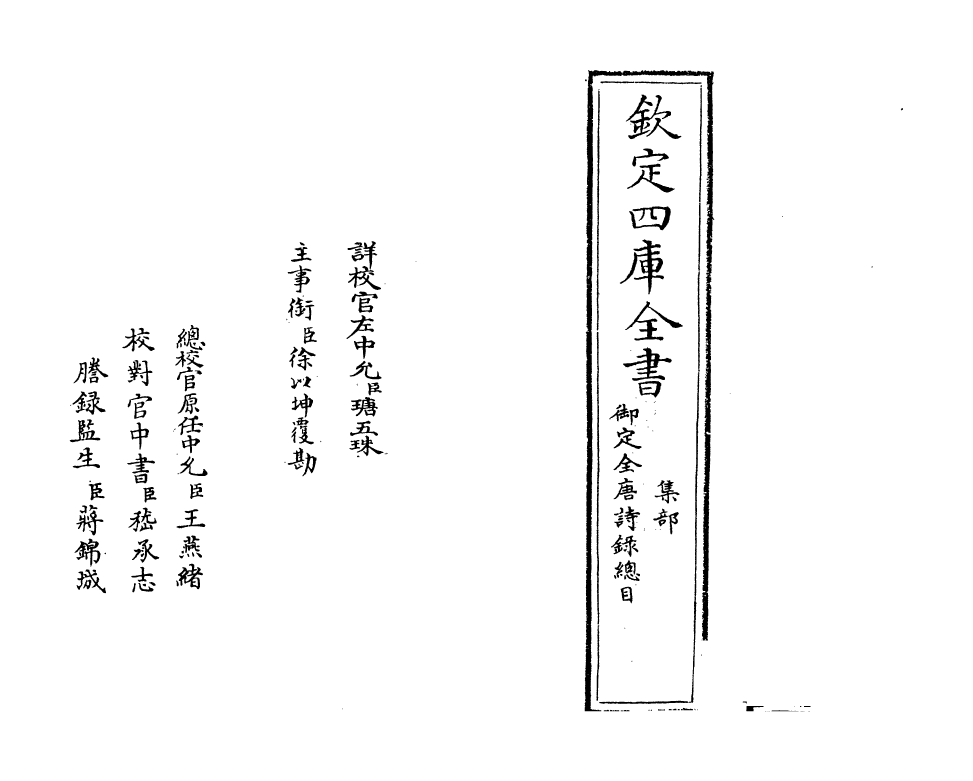 欽定四庫全書
集部
御定全唐詩錄總目
詳校官左中允臣瑭五珠
主事銜臣徐以坤覆勘
總校官原任中允臣王燕緒
校對官中書臣嵇承志
謄錄監生臣蔣錦城